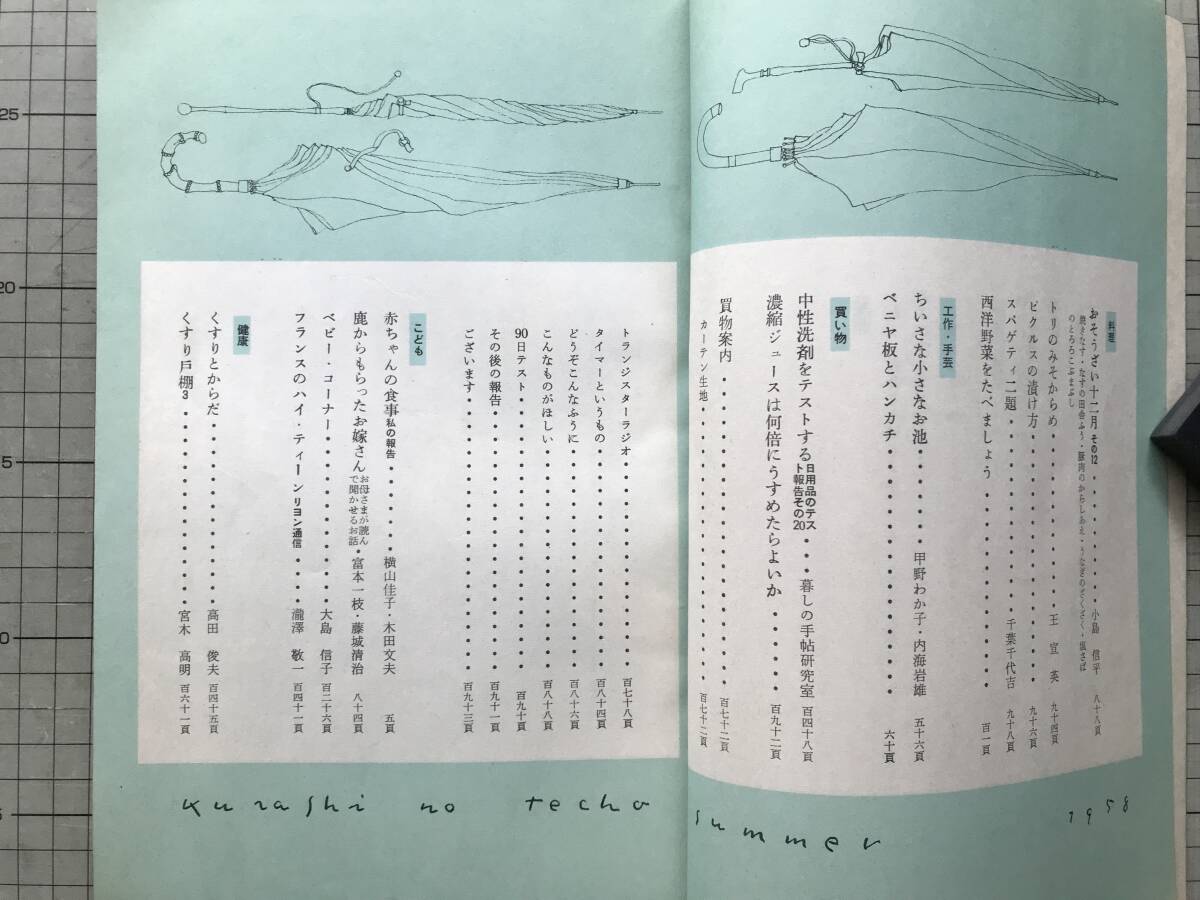 料理
おそうざい十二月 その12 小島 信平 八十八頁
焼きなす・なすの田舎ふう・豚肉のからしあえ・うなぎのざくざく・塩さば
のとろろこぶまぶし
トリのみそからめ 王 宜 英 九十四頁
ピクルスの漬け方 九十六頁
スパゲティ二題 千葉千代吉 九十八頁
西洋野菜をたべましょう 百一頁
工作・手芸
ちいさな小さなお池 甲野わか子・内海岩雄 五十六頁
ベニヤ板とハンカチ 六十頁
買い物
中性洗剤をテストする 日用品のテスト報告その20 暮しの手帖研究室 百四十八頁
濃縮ジュースは何倍にうすめたらよいか 百九十二頁
買物案内 百七十二頁
カーテン生地 百七十二頁
トランジスターラジオ 百七十八頁
タイマーというもの 百八十四頁
どうぞこんなふうに 百八十六頁
こんなものがほしい 百八十八頁
90日テスト 百九十頁
その後の報告 百九十一頁
ございます 百九十三頁
こども
赤ちゃんの食事 私の報告 横山佳子・木田文夫 五頁
鹿からもらったお嫁さん お母さまが読んで聞かせるお話 富本一枝・藤城清治 八十四頁
ベビー・コーナー 大島 信子 百二十六頁
フランスのハイ・ティーン リヨン通信 瀧澤 敬一 百四十一頁
健康
くすりとからだ 高田 俊夫 百四十五頁
くすり戸棚3 宮木 高明 百六十一頁
kurashi no techo summer 1958
25
20